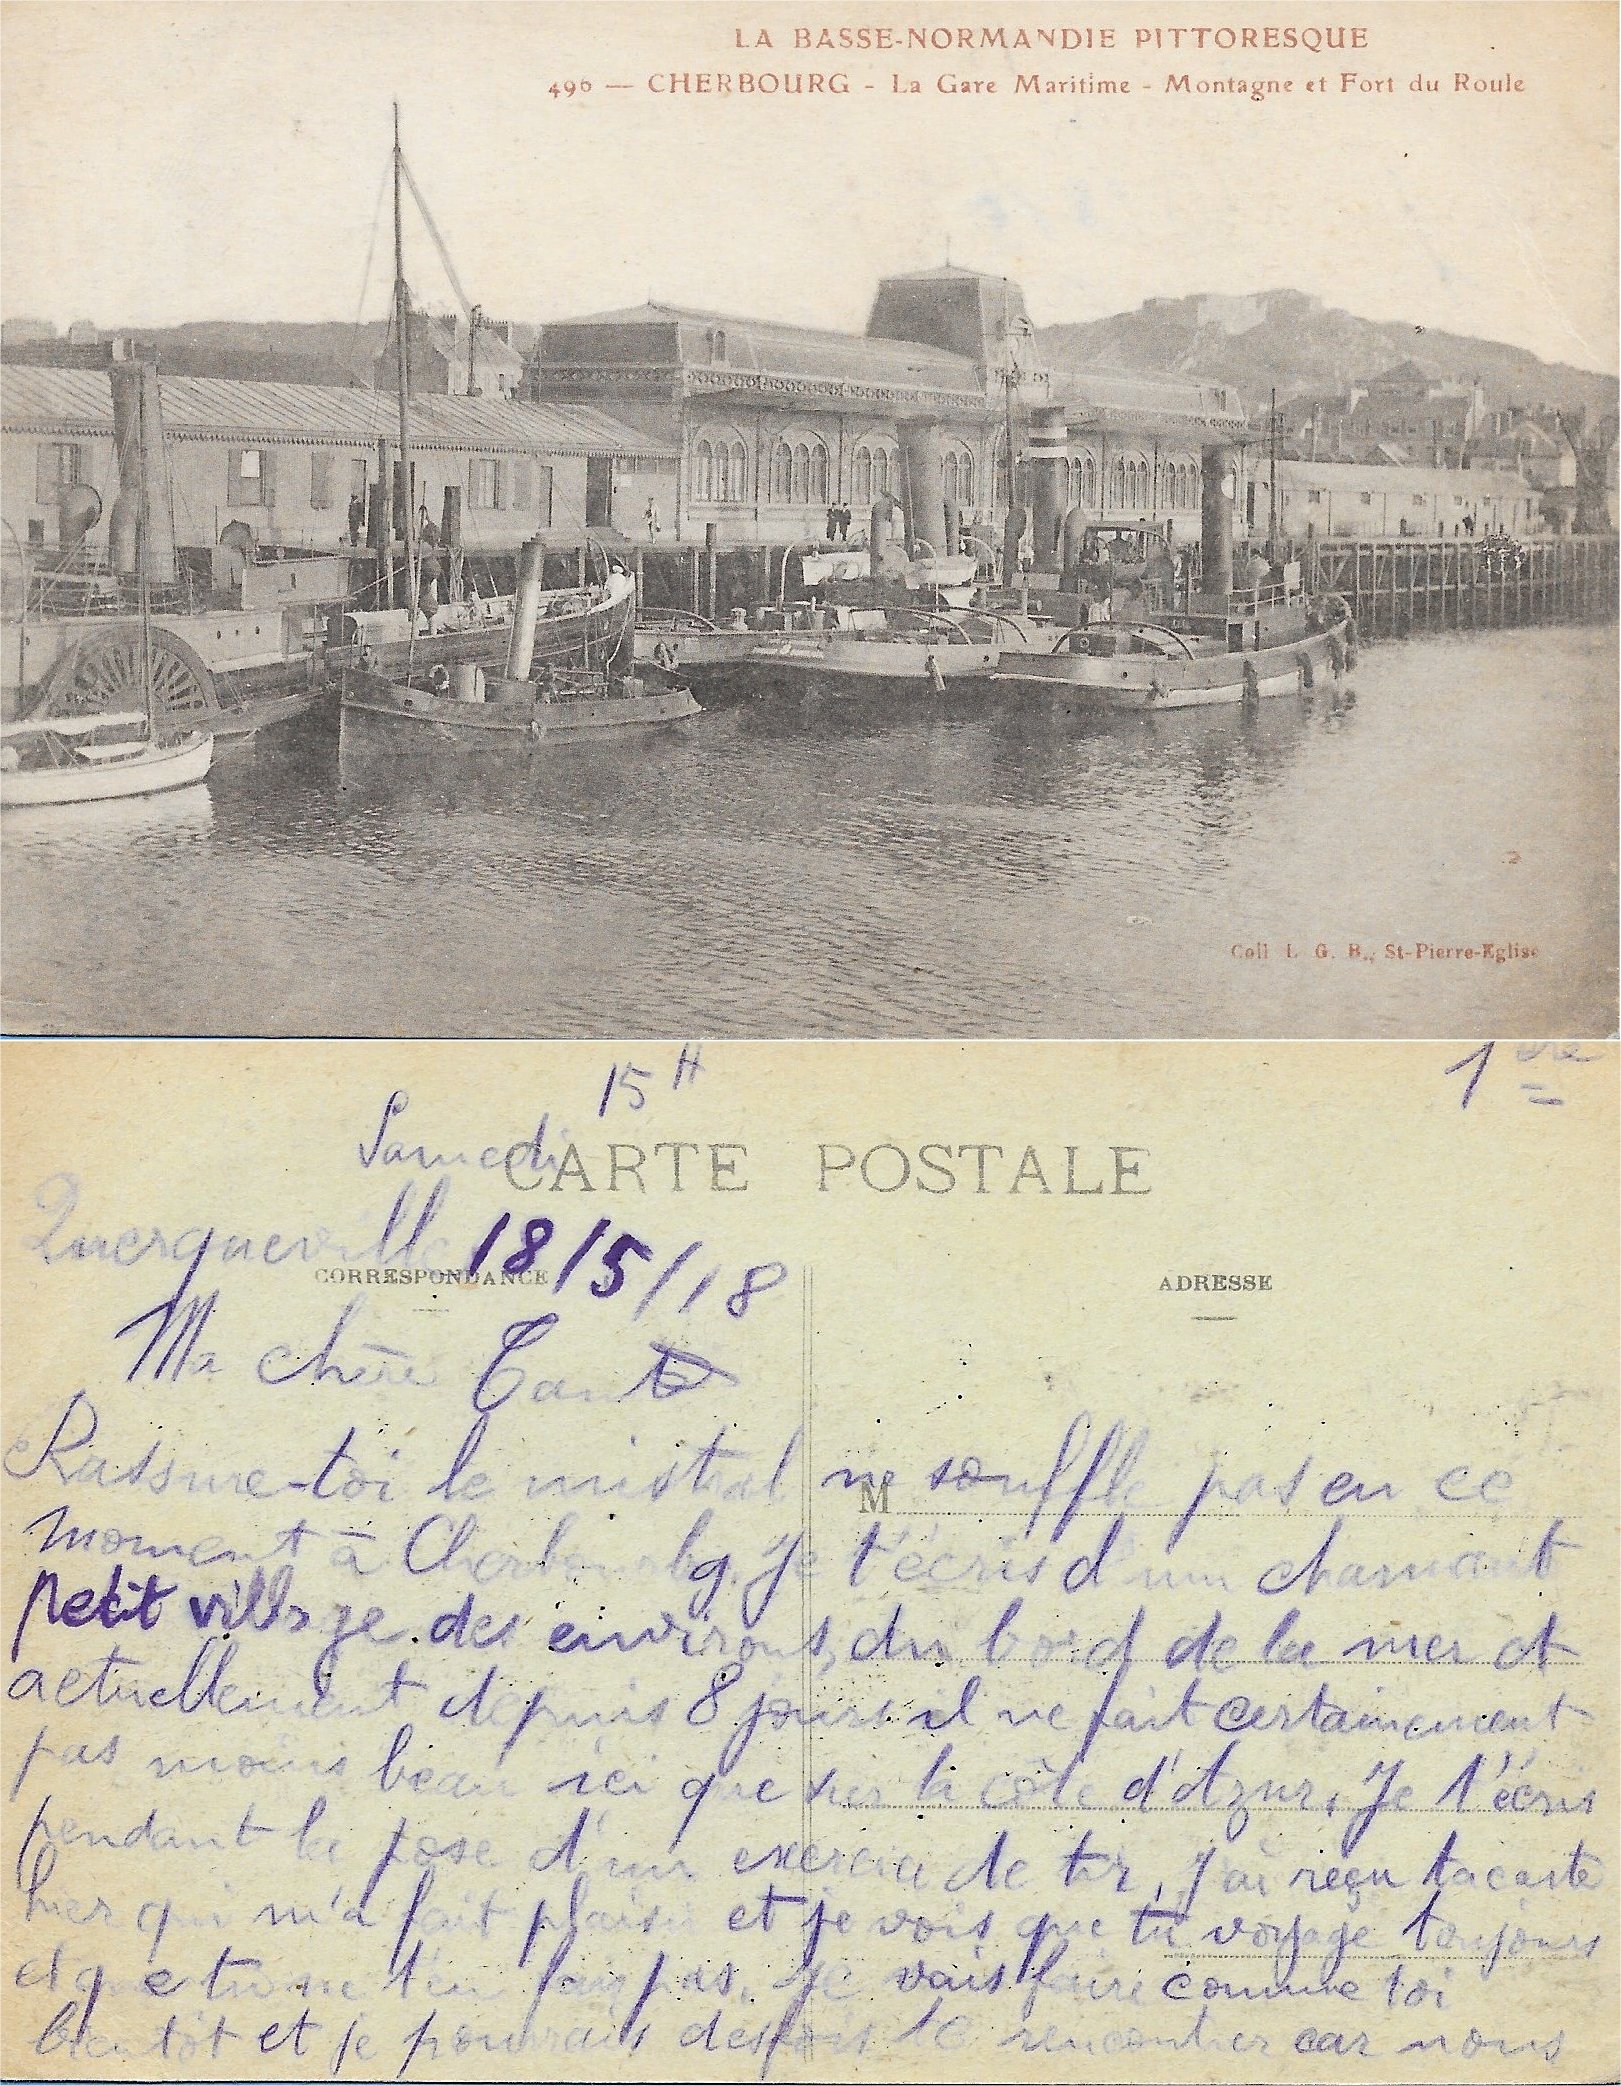 LA BASSE-NORMANDIE PITTORESQUE
496 — CHERBOURG - La Gare Maritime - Montagne et Fort du Roule
Coll. L. G. B., St-Pierre-Eglise
1ère
15 H
Samedi
CARTE POSTALE
Querqueville 18/5/18
CORRESPONDANCE
ADRESSE
Ma chère Tante
M
Rassure-toi le mistral ne souffle pas en ce
moment à Cherbourg. Je t'écris d'un charmant
petit village des environs, du bord de la mer et
actuellement depuis 8 jours il ne fait certainement
pas moins beau ici que sur la côte d'Azur. Je t'écris
pendant la pose d'un exercice de tir, j'ai reçu ta carte
hier qui m'a fait plaisir et je vois que tu voyage toujours
et que tu ne t'en fais pas. Je vais faire comme toi
bientôt et je pourrais des fois te rencontrer car nous